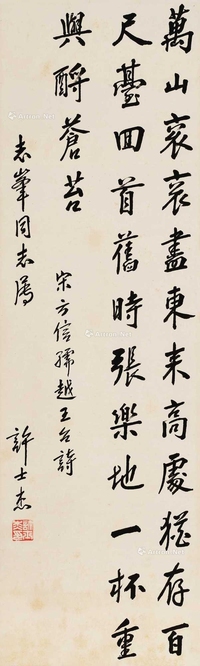 萬山衮衮盡東来高處猶存百
尺臺回首舊時張樂地一杯重
與酹蒼苔
宋方信孺越王台詩
志峯同志屬
許士杰